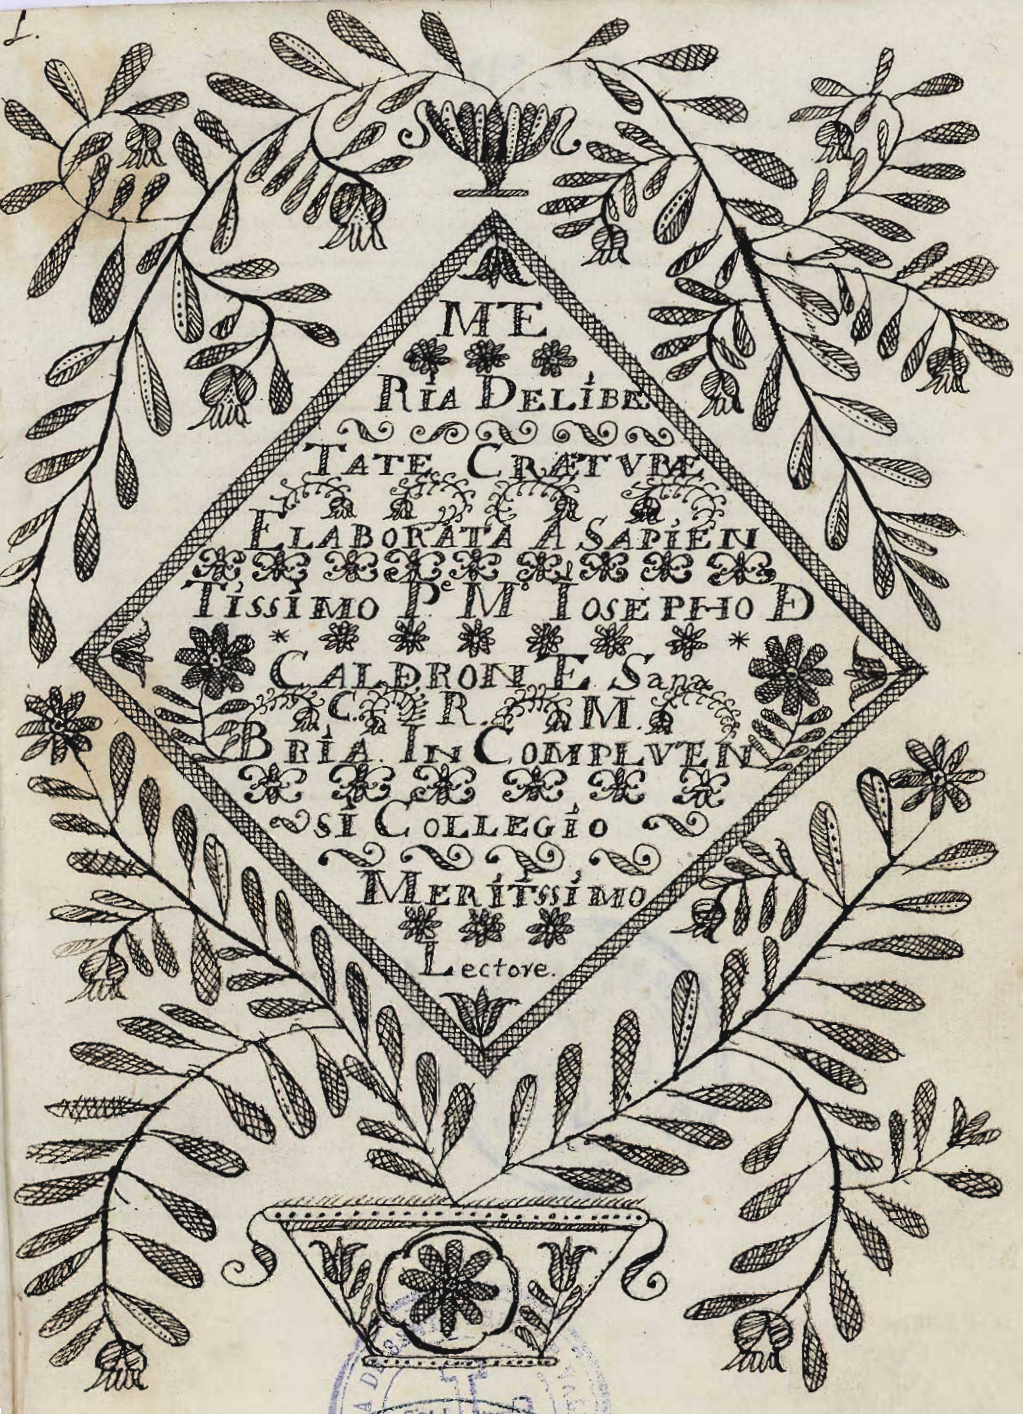 1.
MTE
RIA DELIBE
TATE CRÆTVRÆ
ELABORATA A SAPIEN
TISSIMO P.e M.o IOSEPHO D
CALDRON E Sana
C. R. M.
BRIA IN COMPLVTEN
SI COLLEGIO
MERITSSIMO
Lectore.